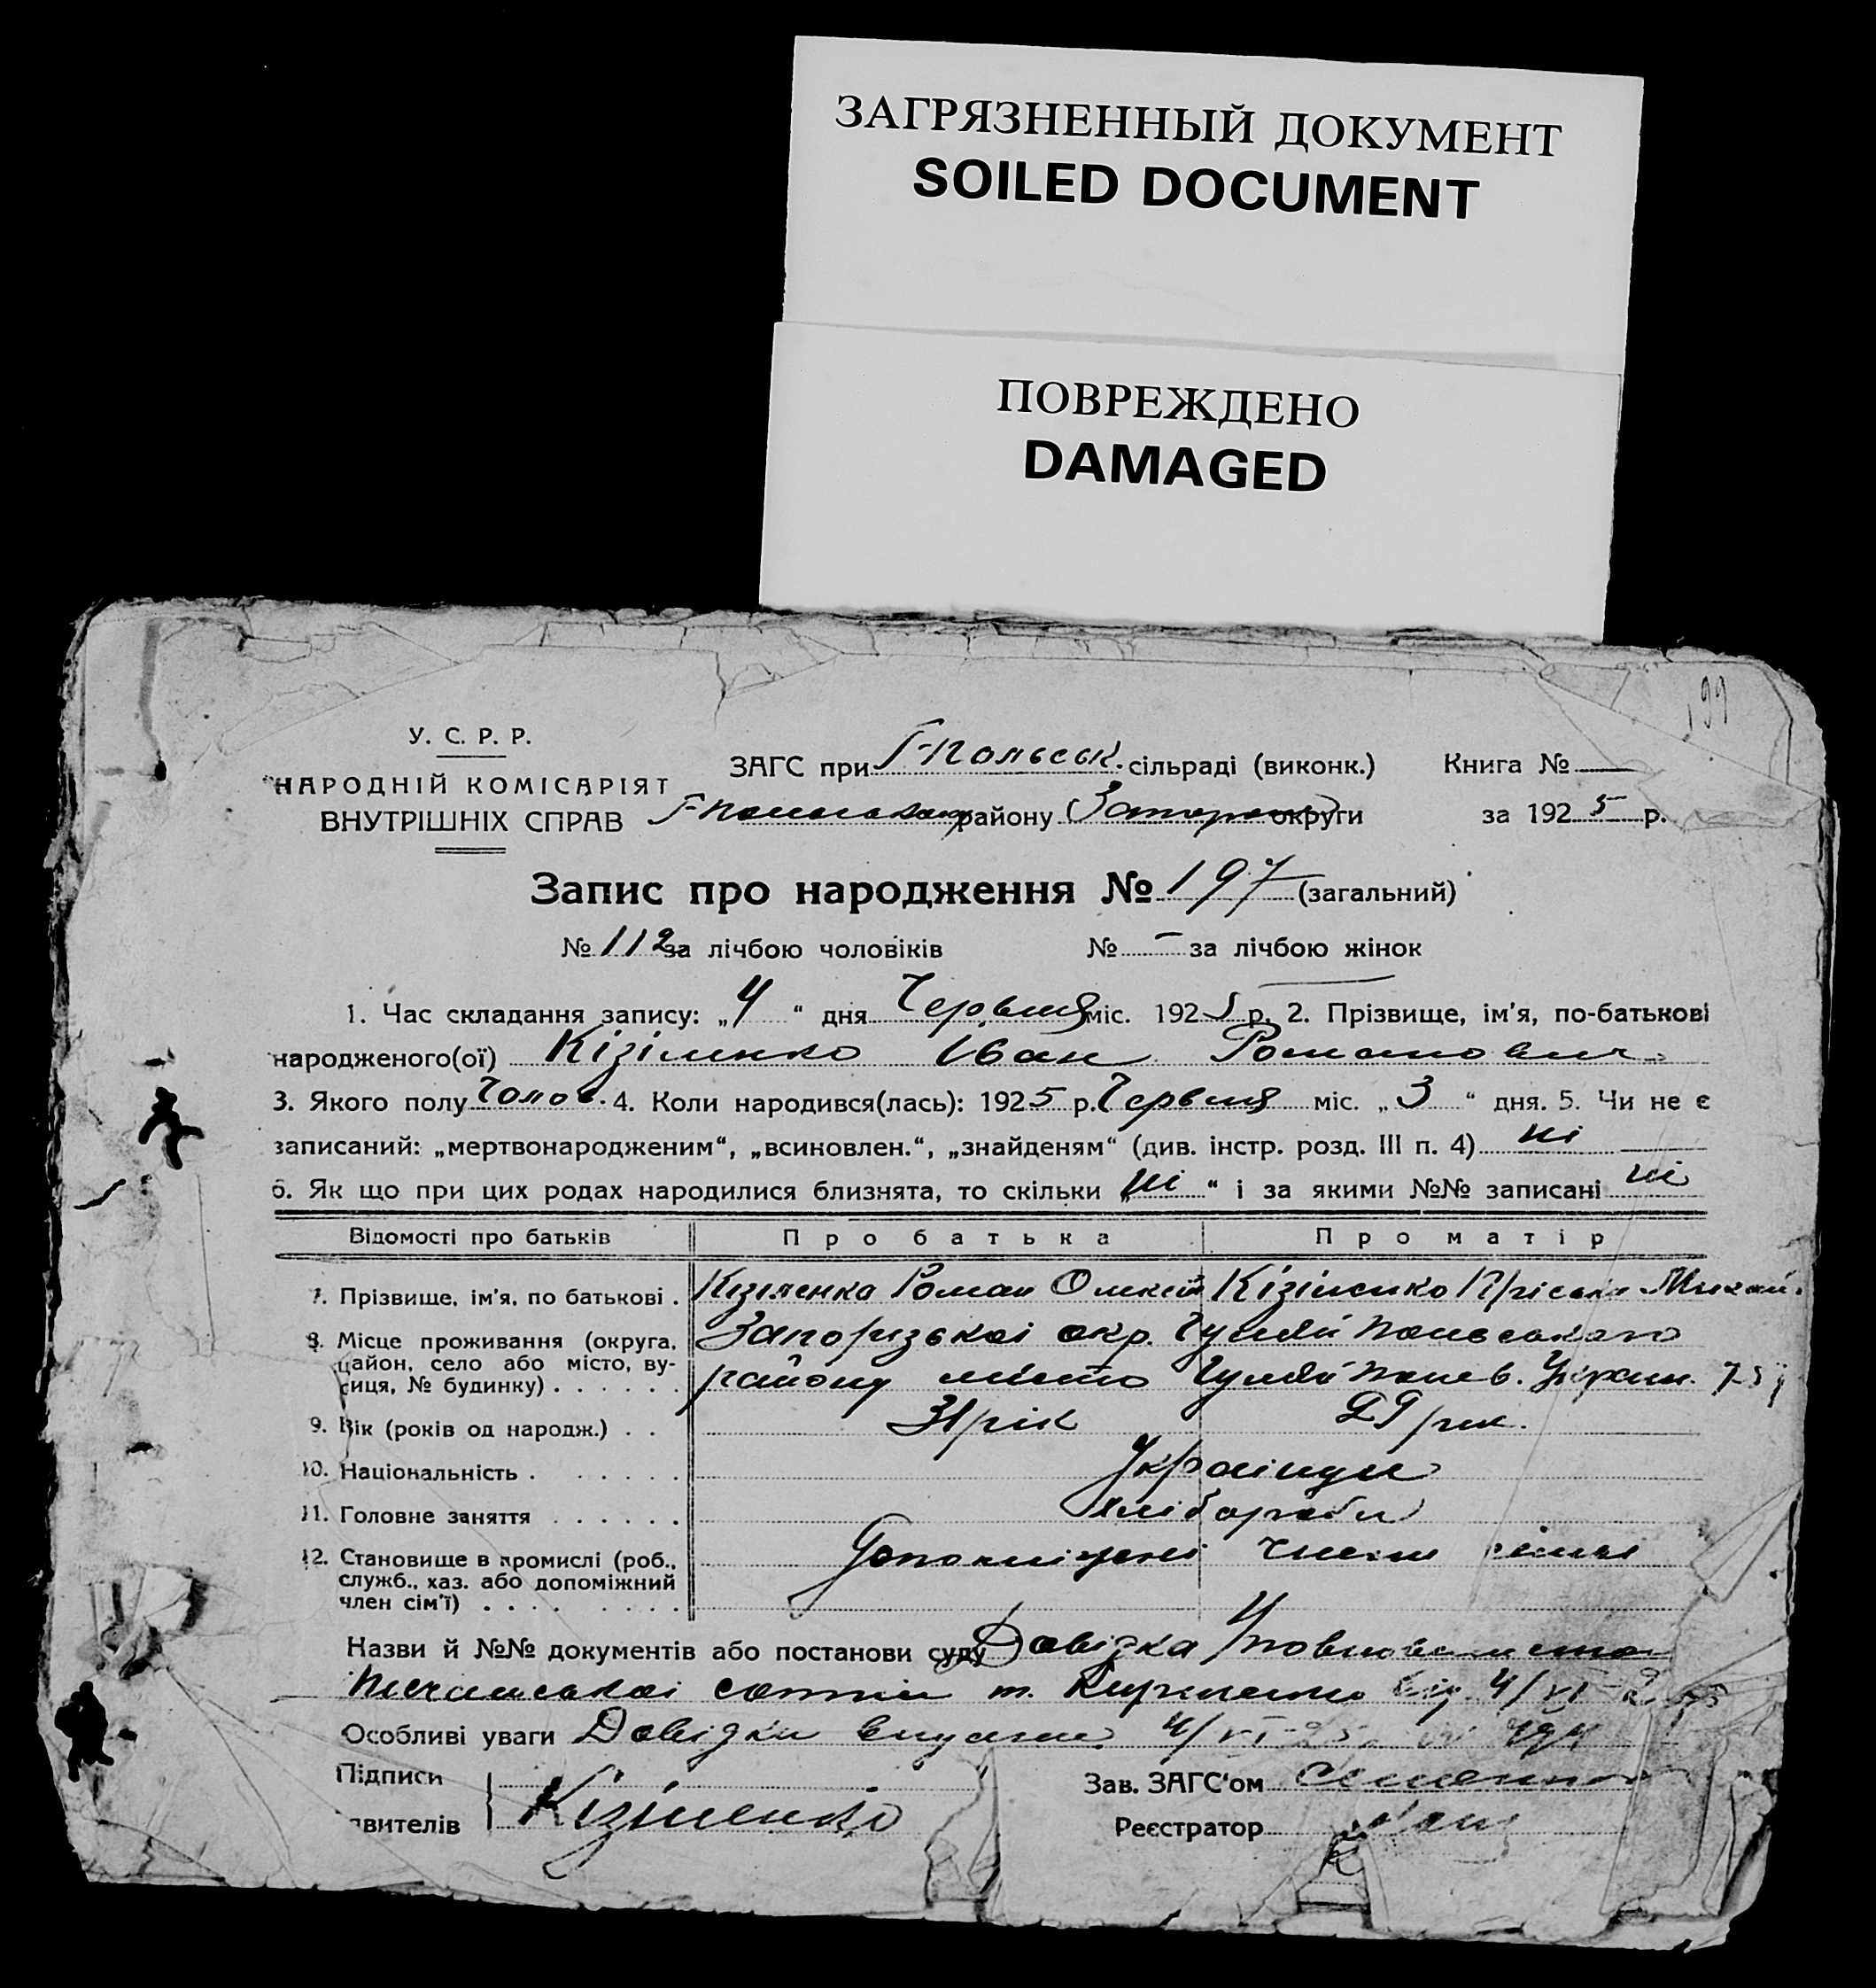 ЗАГРЯЗНЕННЫЙ ДОКУМЕНТ
SOILED DOCUMENT
ПОВРЕЖДЕНО
DAMAGED
199
У. С. Р. Р.
НАРОДНІЙ КОМІСАРІЯТ
ВНУТРІШНІХ СПРАВ
ЗАГС при Г-Польськ. сільраді (виконк.) Книга №
району округи за 1925 р.
Запис про народження № 197 (загальний)
№ 112 за лічбою чоловіків № - за лічбою жінок
1. Час складання запису: „4“ дня Червня міс. 1925 р. 2. Прізвище, ім'я, по-батькові
народженого(ої) Кізіленко Іван Романович
3. Якого полу Чолов. 4. Коли народився(лась): 1925 р. Червня міс. „3“ дня. 5. Чи не є
записаний: „мертвонародженим“, „всиновлен.“, „знайденям“ (див. інстр. розд. III п. 4) ні
6. Як що при цих родах народилися близнята, то скільки „ні“ і за якими №№ записані ні
Відомості про батьків Про батька Про матір
7. Прізвище, ім'я, по батькові . Кізіленко Роман Кізіленко Пріська Михай.
8. Місце проживання (округа, район, село або місто, вулиця, № будинку) . . . . . . Запорізької окр. Гуляй Польського
району місто Гуляй Полев. Україн. 75
9. Вік (років од народж.) . . 31 рік 29 рік.
10. Національність . . . . . . Українці
11. Головне заняття . . . . . . Хлібороби
12. Становище в промислі (роб., служб., хаз. або допоміжний член сім'ї) . . . . . . . . члени сімьі
Назви й №№ документів або постанови суду Довідка
сотні т. Кириленко від 4/VI-25
Особливі уваги Довідки видано 4/VI-25
Підписи
явителів Кізіленко
Зав. ЗАГС'ом
Реєстратор